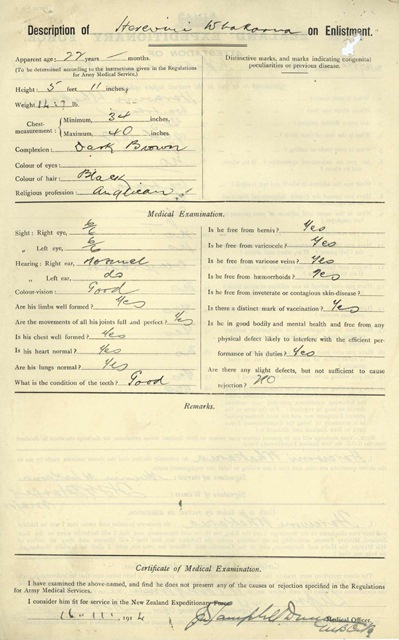 Description of Herewini Whakarua on Enlistment.
Apparent age: 22 years — months.
(To be determined according to the instructions given in the Regulations
for Army Medical Service.)
Height: 5 feet 11 inches.
Weight: lb.
Chest-measurement: Minimum, 34 inches,
Maximum, 40 inches.
Complexion: Dark Brown
Colour of eyes:
Colour of hair: Black
Religious profession: Anglican
Distinctive marks, and marks indicating congenital
peculiarities or previous disease.
Medical Examination.
Sight: Right eye, 6/6
„ Left eye, 6/6
Hearing: Right ear, Normal
„ Left ear, do
Colour-vision: Good
Are his limbs well formed? Yes
Are the movements of all his joints full and perfect? Yes
Is his chest well formed? Yes
Is his heart normal? Yes
Are his lungs normal? Yes
What is the condition of the teeth? Good
Is he free from hernia? Yes
Is he free from varicocele? Yes
Is he free from varicose veins? Yes
Is he free from hæmorrhoids? Yes
Is he free from inveterate or contagious skin-disease?
Is there a distinct mark of vaccination? Yes
Is he in good bodily and mental health and free from any
physical defect likely to interfere with the efficient per-
formance of his duties? Yes
Are there any slight defects, but not sufficient to cause
rejection? No
Remarks.
Certificate of Medical Examination.
I have examined the above-named, and find he does not present any of the causes of rejection specified in the Regulations
for Army Medical Services.
I consider him fit for service in the New Zealand Expeditionary Force
16. 11. 1914
Medical Officer.